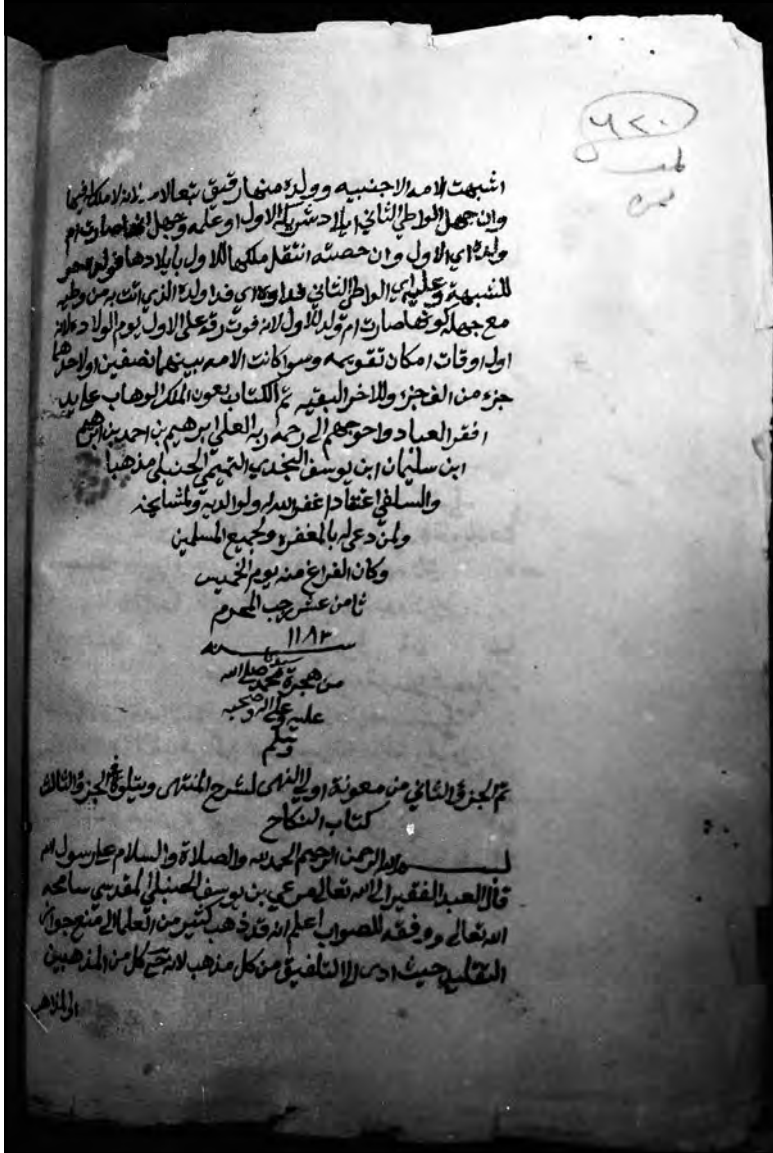 ٦٢٠
اشبهت الامه الاجنبيه وولده منها رقيق تبعا لامه لانه لا ملك له فيها
وان جهل الواطي الثاني ايلاد شريكه الاول او علمه وجهل انها صارت ام
ولده اي الاول وان حصته انتقل ملكها للاول بايلادها فولده حر
للشبهة وعليه اي الواطي الثاني فداوه اي فدا ولده الذي اتت به من وطيه
مع جهله كونها صارت ام ولد للاول لانه فوت رقه على الاول يوم الولادة لانه
اول اوقات امكان تقويمه وسوا كانت الامه بينهما نصفين او لاحدهما
جزء من الف جزء وللاخر البقيه تم الكتاب بعون الملك الوهاب على يد
افقر العباد واحوجهم الى رحمة ربه العلي ابرهيم بن احمد بن ابرهيم
ابن سليمان ابن يوسف النجدي التميمي الحنبلي مذهبا
والسلفي اعتقادا غفر الله له ولوالديه ولمشايخه
ولمن دعى له بالمغفره ولجميع المسلمين
وكان الفراغ منه يوم الخميس
ثامن عشر رجب المحرم
١١٨٣
سنه
من هجرة سيدنا محمد صلى الله
عليه وعلى اله وصحبه
وسلم
تم الجزؤ الثاني من معونة اولي النهى لشرح المنتهى ويتلوه في الجزؤ الثالث
كتاب النكاح
بسم الله الرحمن الرحيم الحمد لله والصلاة والسلام على رسول الله
قال العبد الفقير الى الله تعالى مرعي بن يوسف الحنبلي المقدسي سامحه
الله تعالى ووفقه للصواب اعلم انه قد ذهب كثير من العلما الى منع جواز
التقليد حيث ادى الى التلفيق من كل مذهب لانه كل من المذهبين